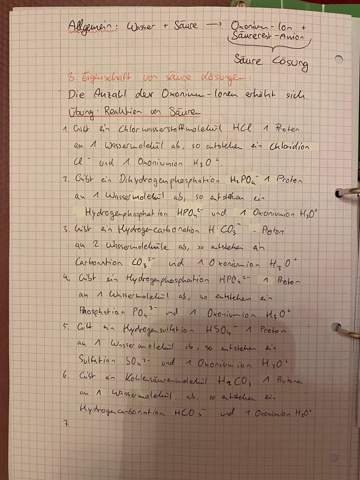 Allgemein: Wasser + Säure → Oxonium-Ion +
Säurerest-Anion
Saure Lösung
3. Eigenschaft von saure Lösungen:
Die Anzahl der Oxonium-Ionen erhöht sich
Übung: Reaktion von Säuren
1. Gibt ein Chlorwasserstoffmolekül HCl 1 Proton
an 1 Wassermolekül ab, so entstehen ein Chloridion
Cl⁻ und 1 Oxoniumion H₃O⁺
2. Gibt ein Dihydrogenphosphation H₂PO₄⁻ 1 Proton
an 1 Wassermolekül ab, so entstehen ein
Hydrogenphosphation HPO₄²⁻ und 1 Oxoniumion H₃O⁺
3. Gibt ein Hydrogencarbonation HCO₃⁻ Proton
an 2 Wassermoleküle ab, so entstehen ein
Carbonation CO₃²⁻ und 1 Oxoniumion H₃O⁺
4. Gibt ein Hydrogenphosphation HPO₄²⁻ 1 Proton
an 1 Wassermolekül ab, so entstehen ein
Phosphation PO₄³⁻ und 1 Oxoniumion H₃O⁺
5. Gibt ein Hydrogensulfation HSO₄⁻ 1 Proton
an 1 Wassermolekül ab, so entstehen ein
Sulfation SO₄²⁻ und 1 Oxoniumion H₃O⁺
6. Gibt ein Kohlensäuremolekül H₂CO₃ 1 Proton
an 1 Wassermolekül ab, so entstehen ein
Hydrogencarbonation HCO₃⁻ und 1 Oxoniumion H₃O⁺
7.